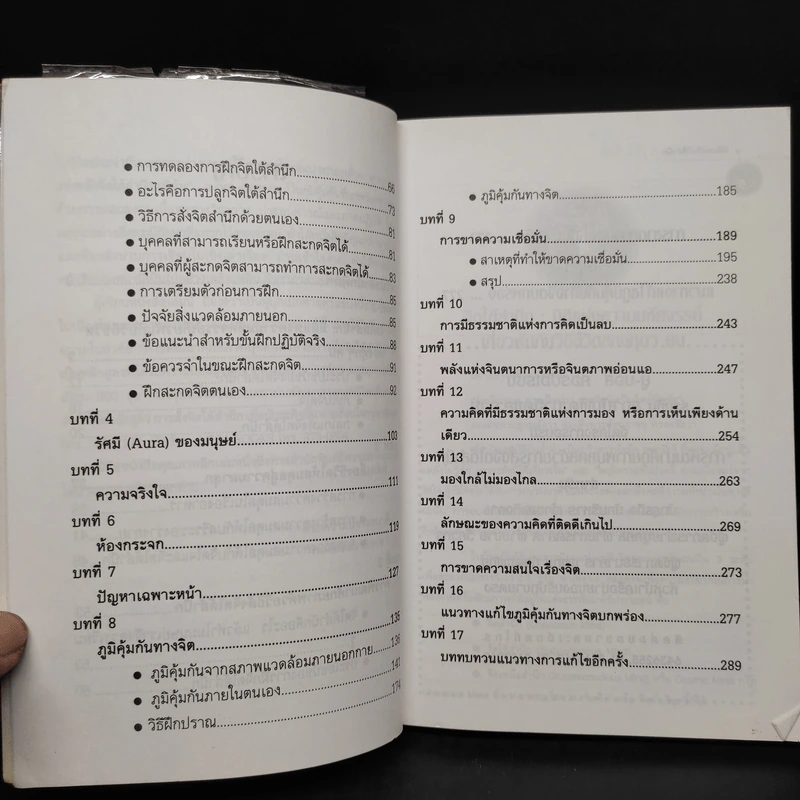 ● การทดลองการฝึกจิตใต้สำนึก....................66
● อะไรคือการปลูกจิตใต้สำนึก.....................73
● วิธีการสั่งจิตสำนึกด้วยตนเอง....................81
● บุคคลที่สามารถเรียนหรือฝึกสะกดจิตได้..........81
● บุคคลที่ผู้สะกดจิตสามารถทำการสะกดจิตได้......83
● การเตรียมตัวก่อนการฝึก........................85
● ปัจจัยสิ่งแวดล้อมภายนอก......................85
● ข้อแนะนำสำหรับขั้นฝึกปฏิบัติจริง...............88
● ข้อควรจำในขณะฝึกสะกดจิต....................91
● ฝึกสะกดจิตตนเอง..............................92
บทที่ 4
รัศมี (Aura) ของมนุษย์..............................103
บทที่ 5
ความจริงใจ..........................................111
บทที่ 6
ห้องกระจก...........................................119
บทที่ 7
ปัญหาเฉพาะหน้า.....................................127
บทที่ 8
ภูมิคุ้มกันทางจิต.....................................135
● ภูมิคุ้มกันจากสภาพแวดล้อมภายนอกกาย.........136
● ภูมิคุ้มกันภายในตนเอง.........................141
● วิธีฝึกปราณ....................................174
● ภูมิคุ้มกันทางจิต................................185
บทที่ 9
การขาดความเชื่อมั่น..................................189
● สาเหตุที่ทำให้ขาดความเชื่อมั่น..................195
● สรุป............................................238
บทที่ 10
การมีธรรมชาติแห่งการคิดเป็นลบ.....................243
บทที่ 11
พลังแห่งจินตนาการหรือจินตภาพอ่อนแอ.............247
บทที่ 12
ความคิดที่มีธรรมชาติแห่งการมอง หรือการเห็นเพียงด้าน
เดียว................................................254
บทที่ 13
มองใกล้ไม่มองไกล...................................263
บทที่ 14
ลักษณะของความคิดที่ติดดีเกินไป.....................269
บทที่ 15
การขาดความสนใจเรื่องจิต............................273
บทที่ 16
แนวทางแก้ไขภูมิคุ้มกันทางจิตบกพร่อง...............277
บทที่ 17
บททบทวนแนวทางการแก้ไขอีกครั้ง...................289